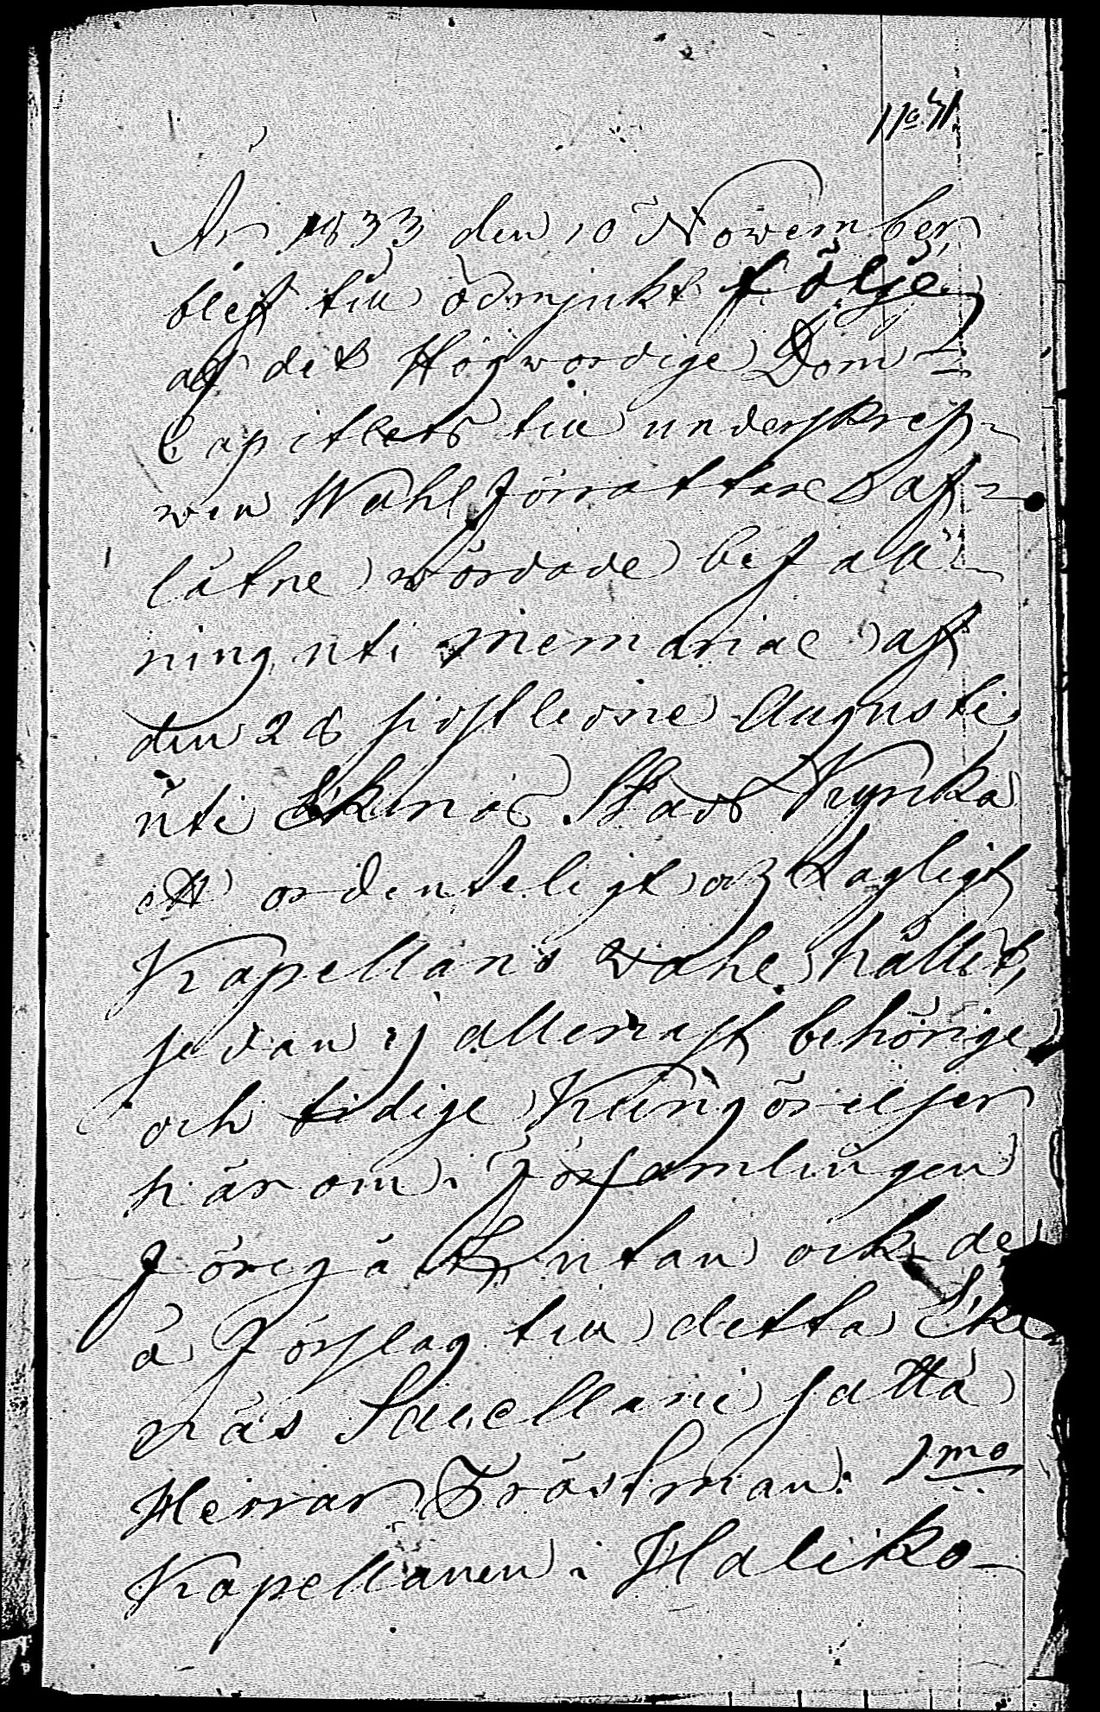 No 41.
År 1833 den 10 November
blef till ödmjukt följe
af det Högwördige Dom-
Capitlets till underskref-
wen Wahlförrättare af-
låtne wördade befall-
ning uti memoriae af
den 28 sidstledne Augusti,
uti Ekenäs Stads Kyrka
ett ordenteligt och lagligt
Kapellans wahl hållit,
sedan ej allenast behörige
och tidige Kungörelser
härom i Församlingen
föregått, utan ock de
å Förslag till detta Eke-
näs Sacellanie satta
Herrar Tröstman: 1mo
Kapellanen i Haliko-